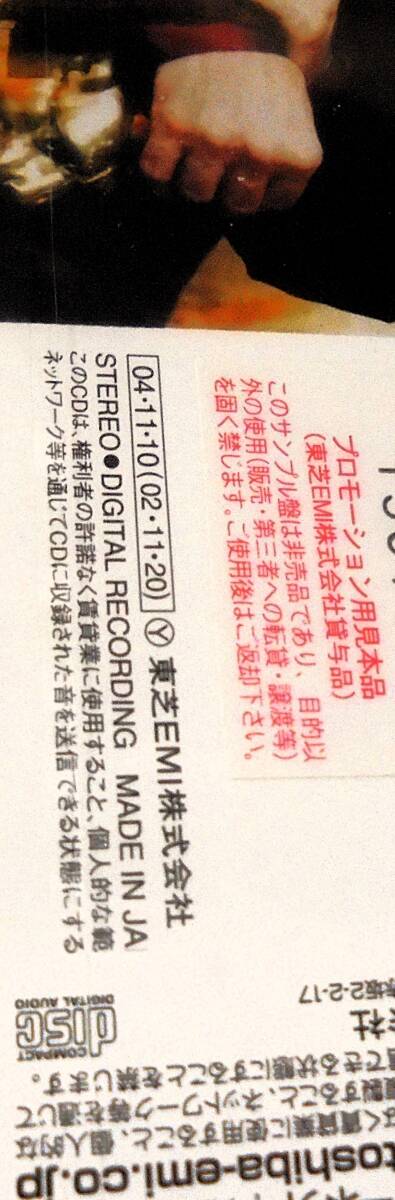 プロモーション用見本品
(東芝EMI株式会社貸与品)
このサンプル盤は非売品であり、目的以
外の使用(販売・第三者への転貸・譲渡等)
を固く禁じます。ご使用後はご返却下さい。
04・11・10(02・11・20) Ⓨ 東芝EMI株式会社
STEREO●DIGITAL RECORDING MADE IN JA
このCDは、権利者の許諾なく賃貸業に使用すること、個人的な範
ネットワーク等を通じてCDに収録された音を送信できる状態にする
赤坂2-2-17
会社
COMPACT
disc
DIGITAL AUDIO
なく賃貸業に使用すること、個人的な
複製すること、ネットワーク等を通じて
信できる状態にすることを禁じます。
toshiba-emi.co.jp